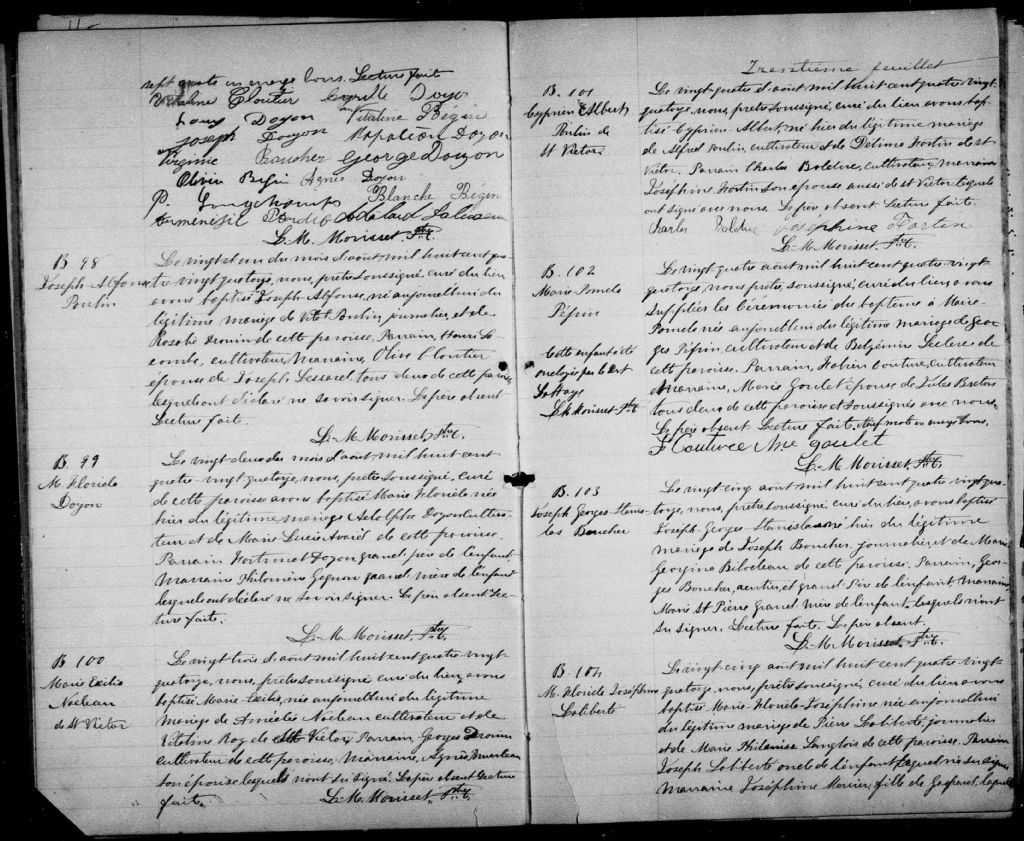 sept mots en marge bons. Lecture faite
Cloutier Cyrille Doyon
Doyon Vitaline Bégin
Joseph Doyon Napoléon Doyon
Virginie Boucher George Doyon
Olivier Bégin Agnès Doyon
P. Longchamps Blanche Bégin
L. M. Morisset, Ptr.
B. 98
Joseph Alfonse
Poulin
Le vingt et un du mois d'aout mil huit cent qua-
tre vingt quatorze, nous, prêtre soussigné, curé du lieu
avons baptisé Joseph Alfonse, né aujourd'hui du
légitime mariage de Vital Poulin, journalier, et de
Rosalie Drouin de cette paroisse. Parrain, Henri La-
combe, cultivateur, Marraine, Olive Cloutier
épouse de Joseph Lessard, tous deux de cette paroisse,
lesquels ont déclaré ne savoir signer. Le père absent
Lecture faite.
L. M. Morisset, Ptr.
B. 99
M. Floride
Doyon
Le vingt deux du mois d'aout mil huit cent
quatre-vingt quatorze, nous, prêtre soussigné, curé
de cette paroisse avons baptisé Marie Floride née
hier du légitime mariage Adolphe Doyon cultiva-
teur et de Marie Lucie Avard de cette paroisse.
Parrain Doyon grand père de l'enfant
Marraine Philomène Gagnon grand mère de l'enfant
lesquels ont déclaré ne savoir signer. Le père absent Lec-
ture faite.
L. M. Morisset, Ptr.
B. 100
Marie Exilia
Nadeau
de St Victor
Le vingt trois d'aout mil huit cent quatre vingt-
quatorze, nous, prêtre soussigné, curé du lieu, avons
baptisé Marie-Exilia, née aujourd'hui du légitime
mariage de Nadeau cultivateur et de
Vitaline Roy de St Victor, Parrain, Georges Drouin
cultivateur de cette paroisse, Marraine, Agnès
son épouse lesquels n'ont su signé. Le père absent Lecture
faite.
L. M. Morisset, Ptr.
Trentième feuillet
B. 101
Cyprien Albert
Poulin de
St Victor
Le vingt quatre d'aout mil huit cent quatre vingt
quatorze, nous, prêtre soussigné, curé du lieu avons bap-
tisé Cyprien-Albert, né hier du légitime mariage
de Alfred Poulin, cultivateur et de Délima Fortin de St
Victor. Parrain Charles Bolduc, cultivateur, marraine
Joséphine Fortin son épouse aussi de St Victor lesquels
ont signé avec nous. Le père absent Lecture faite.
Charles Bolduc Joséphine Fortin
L. M. Morisset, Ptr.
B. 102
Marie Pamela
Pépin
Cette enfant a été
ondoyée par le Dct
L. M. Morisset Ptr.
Le vingt quatre aout mil huit cent quatre vingt
quatorze, nous, prêtre, soussigné, curé du lieu, avons
suppléés les Cérémonies du baptème à Marie-
Pamela née aujourd'hui du légitime mariage de Geor-
ges Pépin, cultivateur et de Belzémire Leclerc de
cette paroisse. Parrain, Couture, cultivateur
et Marraine, Marie Goulet épouse de Jules Breton
tous deux de cette paroisse et soussignés avec nous.
Le père absent. Lecture faite. Neuf mots en marge bons.
F Couture Mre goulet
L. M. Morisset, Ptr.
B. 103
Joseph Georges Stanis-
las Boucher
Le vingt cinq aout mil huit cent quatre vingt qua-
torze, nous, prêtre soussigné, curé du lieu, avons baptisé
Joseph Georges Stanislas né hier du légitime
mariage de Joseph Boucher, journalier, et de Marie
Georgina Bilodeau de cette paroisse. Parrain, Geor-
ges Boucher, rentier et grand Père de l'enfant, marraine
Marie St Pierre grand mère de l'enfant, lesquels n'ont
su signer. Lecture faite. Le père absent.
L. M. Morisset, Ptr.
B. 104
M. Floride Joséphine
Laliberté
Le vingt cinq aout mil huit cent quatre vingt-
quatorze, nous, prêtre soussigné, curé du lieu avons
baptisé Marie-Floride-Joséphine née aujourd'hui
du légitime mariage de Pierre Laliberté, journalier
et de Marie Philanise Langlois de cette paroisse. Parrain
Joseph Laliberté oncle de l'enfant lequel n'a su signer
Marraine Joséphine Mercier, fille de Gaspard, laquelle